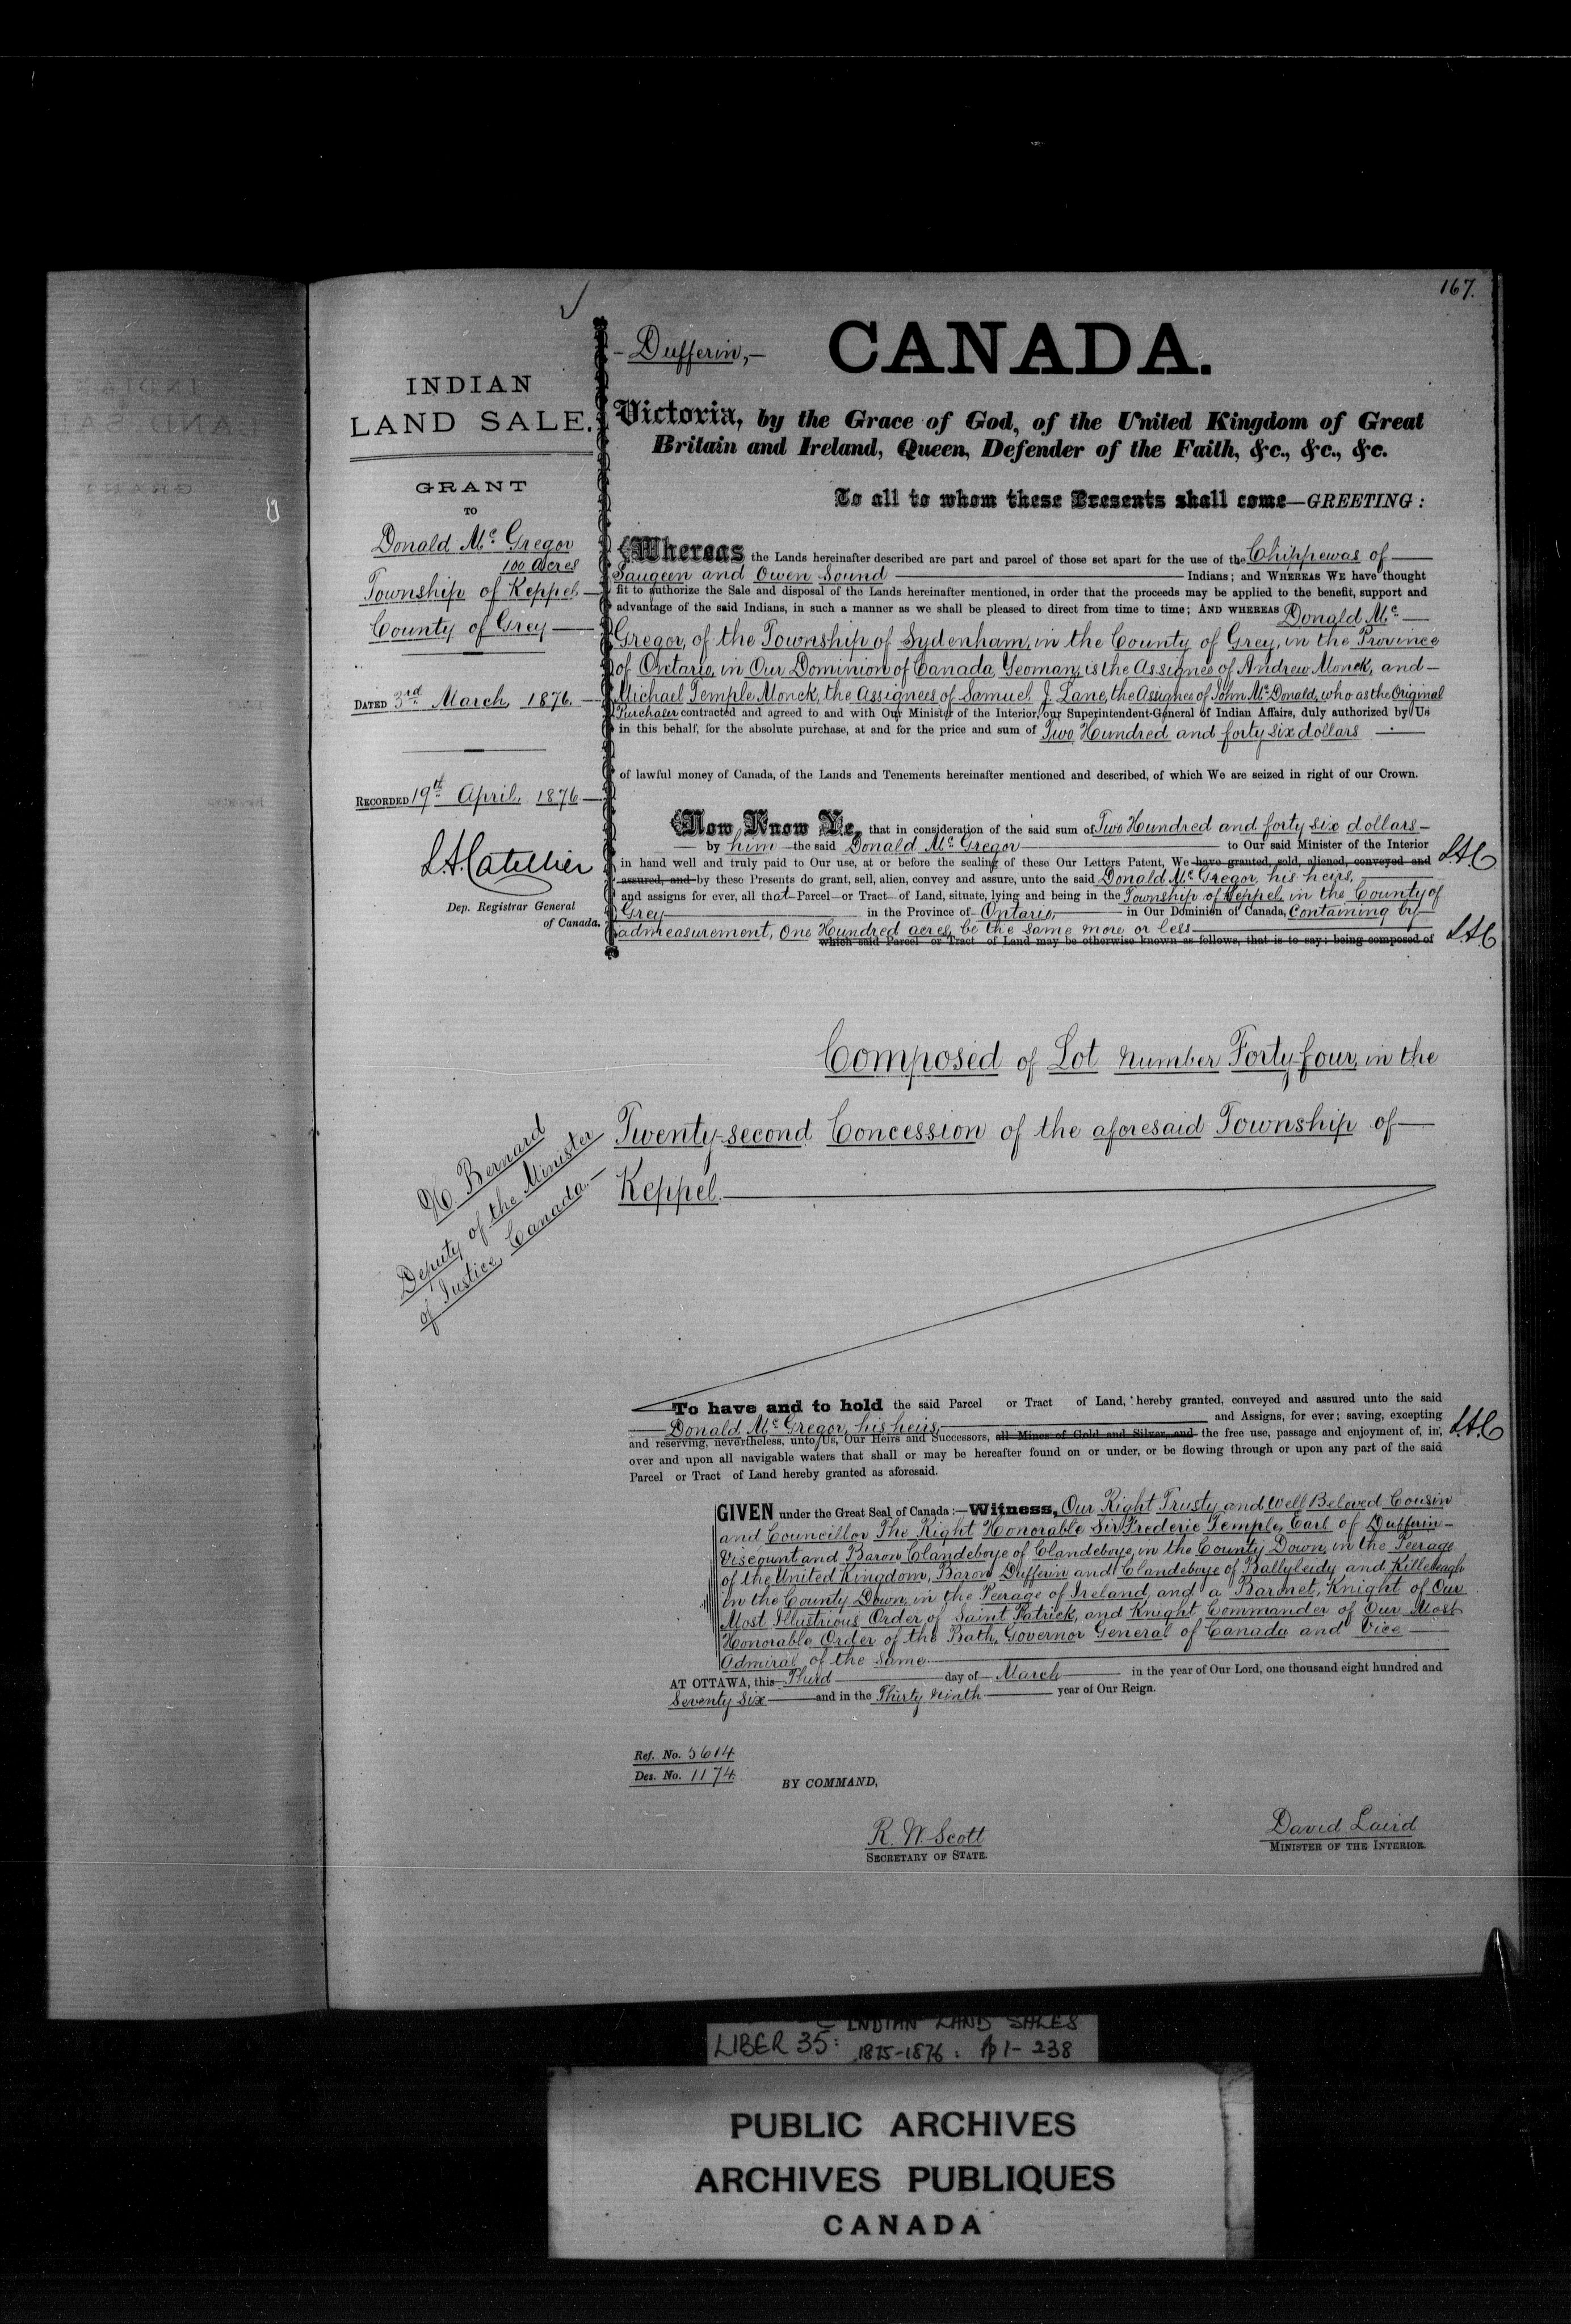 167.
INDIAN
LAND SALE.
GRANT
TO
Donald Mc Gregor
100 Acres
Township of Keppel
County of Grey
DATED 3rd March, 1876.
RECORDED 19th April, 1876
L.A. Catellier
Dep. Registrar General
of Canada.
H. Bernard
Deputy of the Minister
of Justice, Canada.
Dufferin,
CANADA.
Victoria, by the Grace of God, of the United Kingdom of Great
Britain and Ireland, Queen, Defender of the Faith, &c., &c., &c.
To all to whom these Presents shall come—GREETING:
Whereas the Lands hereinafter described are part and parcel of those set apart for the use of the Chippewas of
Saugeen and Owen Sound Indians; and WHEREAS WE have thought
fit to authorize the Sale and disposal of the Lands hereinafter mentioned, in order that the proceeds may be applied to the benefit, support and
advantage of the said Indians, in such a manner as we shall be pleased to direct from time to time; AND WHEREAS Donald Mc
Gregor, of the Township of Sydenham, in the County of Grey, in the Province
of Ontario, in Our Dominion of Canada, Yeoman, is the Assignee of Andrew Monck, and
Michael Temple Monck, the Assignees of Samuel J. Lane, the Assignee of John McDonald, who as the Original
Purchaser contracted and agreed to and with Our Minister of the Interior, our Superintendent-General of Indian Affairs, duly authorized by Us
in this behalf, for the absolute purchase, at and for the price and sum of Two Hundred and forty six dollars
of lawful money of Canada, of the Lands and Tenements hereinafter mentioned and described, of which We are seized in right of our Crown.
Now Know Ye, that in consideration of the said sum of Two Hundred and forty six dollars
by him the said Donald Mc Gregor to Our said Minister of the Interior
in hand well and truly paid to Our use, at or before the sealing of these Our Letters Patent, We have granted, sold, aliened, conveyed and L.A.C
assured, and by these Presents do grant, sell, alien, convey and assure, unto the said Donald Mc Gregor, his heirs,
and assigns for ever, all that Parcel or Tract of Land, situate, lying and being in the Township of Keppel, in the County of
Grey in the Province of Ontario, in Our Dominion of Canada, Containing by
admeasurement, One Hundred acres, be the same more or less
which said Parcel or Tract of Land may be otherwise known as follows, that is to say: being composed of L.A.C
Composed of Lot number Forty-four, in the
Twenty-second Concession of the aforesaid Township of
Keppel.
To have and to hold the said Parcel or Tract of Land, hereby granted, conveyed and assured unto the said
Donald Mc Gregor, his heirs, and Assigns, for ever; saving, excepting
and reserving, nevertheless, unto Us, Our Heirs and Successors, all Mines of Gold and Silver, and the free use, passage and enjoyment of, in, L.A.C
over and upon all navigable waters that shall or may be hereafter found on or under, or be flowing through or upon any part of the said
Parcel or Tract of Land hereby granted as aforesaid.
GIVEN under the Great Seal of Canada:—Witness, Our Right Trusty and Well Beloved Cousin
and Councillor The Right Honorable Sir Frederic Temple, Earl of Dufferin
Viscount and Baron Clandeboye of Clandeboye, in the County Down, in the Peerage
of the United Kingdom, Baron Dufferin and Clandeboye of Ballyleidy and Killeleagh
in the County Down, in the Peerage of Ireland, and a Baronet, Knight of Our
Most Illustrious Order of Saint Patrick, and Knight Commander of Our Most
Honorable Order of the Bath, Governor General of Canada and Vice
Admiral of the same
AT OTTAWA, this Third day of March in the year of Our Lord, one thousand eight hundred and
Seventy six and in the Thirty ninth year of Our Reign.
Ref. No. 5614
Des. No. 1174
BY COMMAND,
R. W. Scott
SECRETARY OF STATE.
David Laird
MINISTER OF THE INTERIOR.
LIBER 35: INDIAN LAND SALES
1875-1876: pp 1-238
PUBLIC ARCHIVES
ARCHIVES PUBLIQUES
CANADA